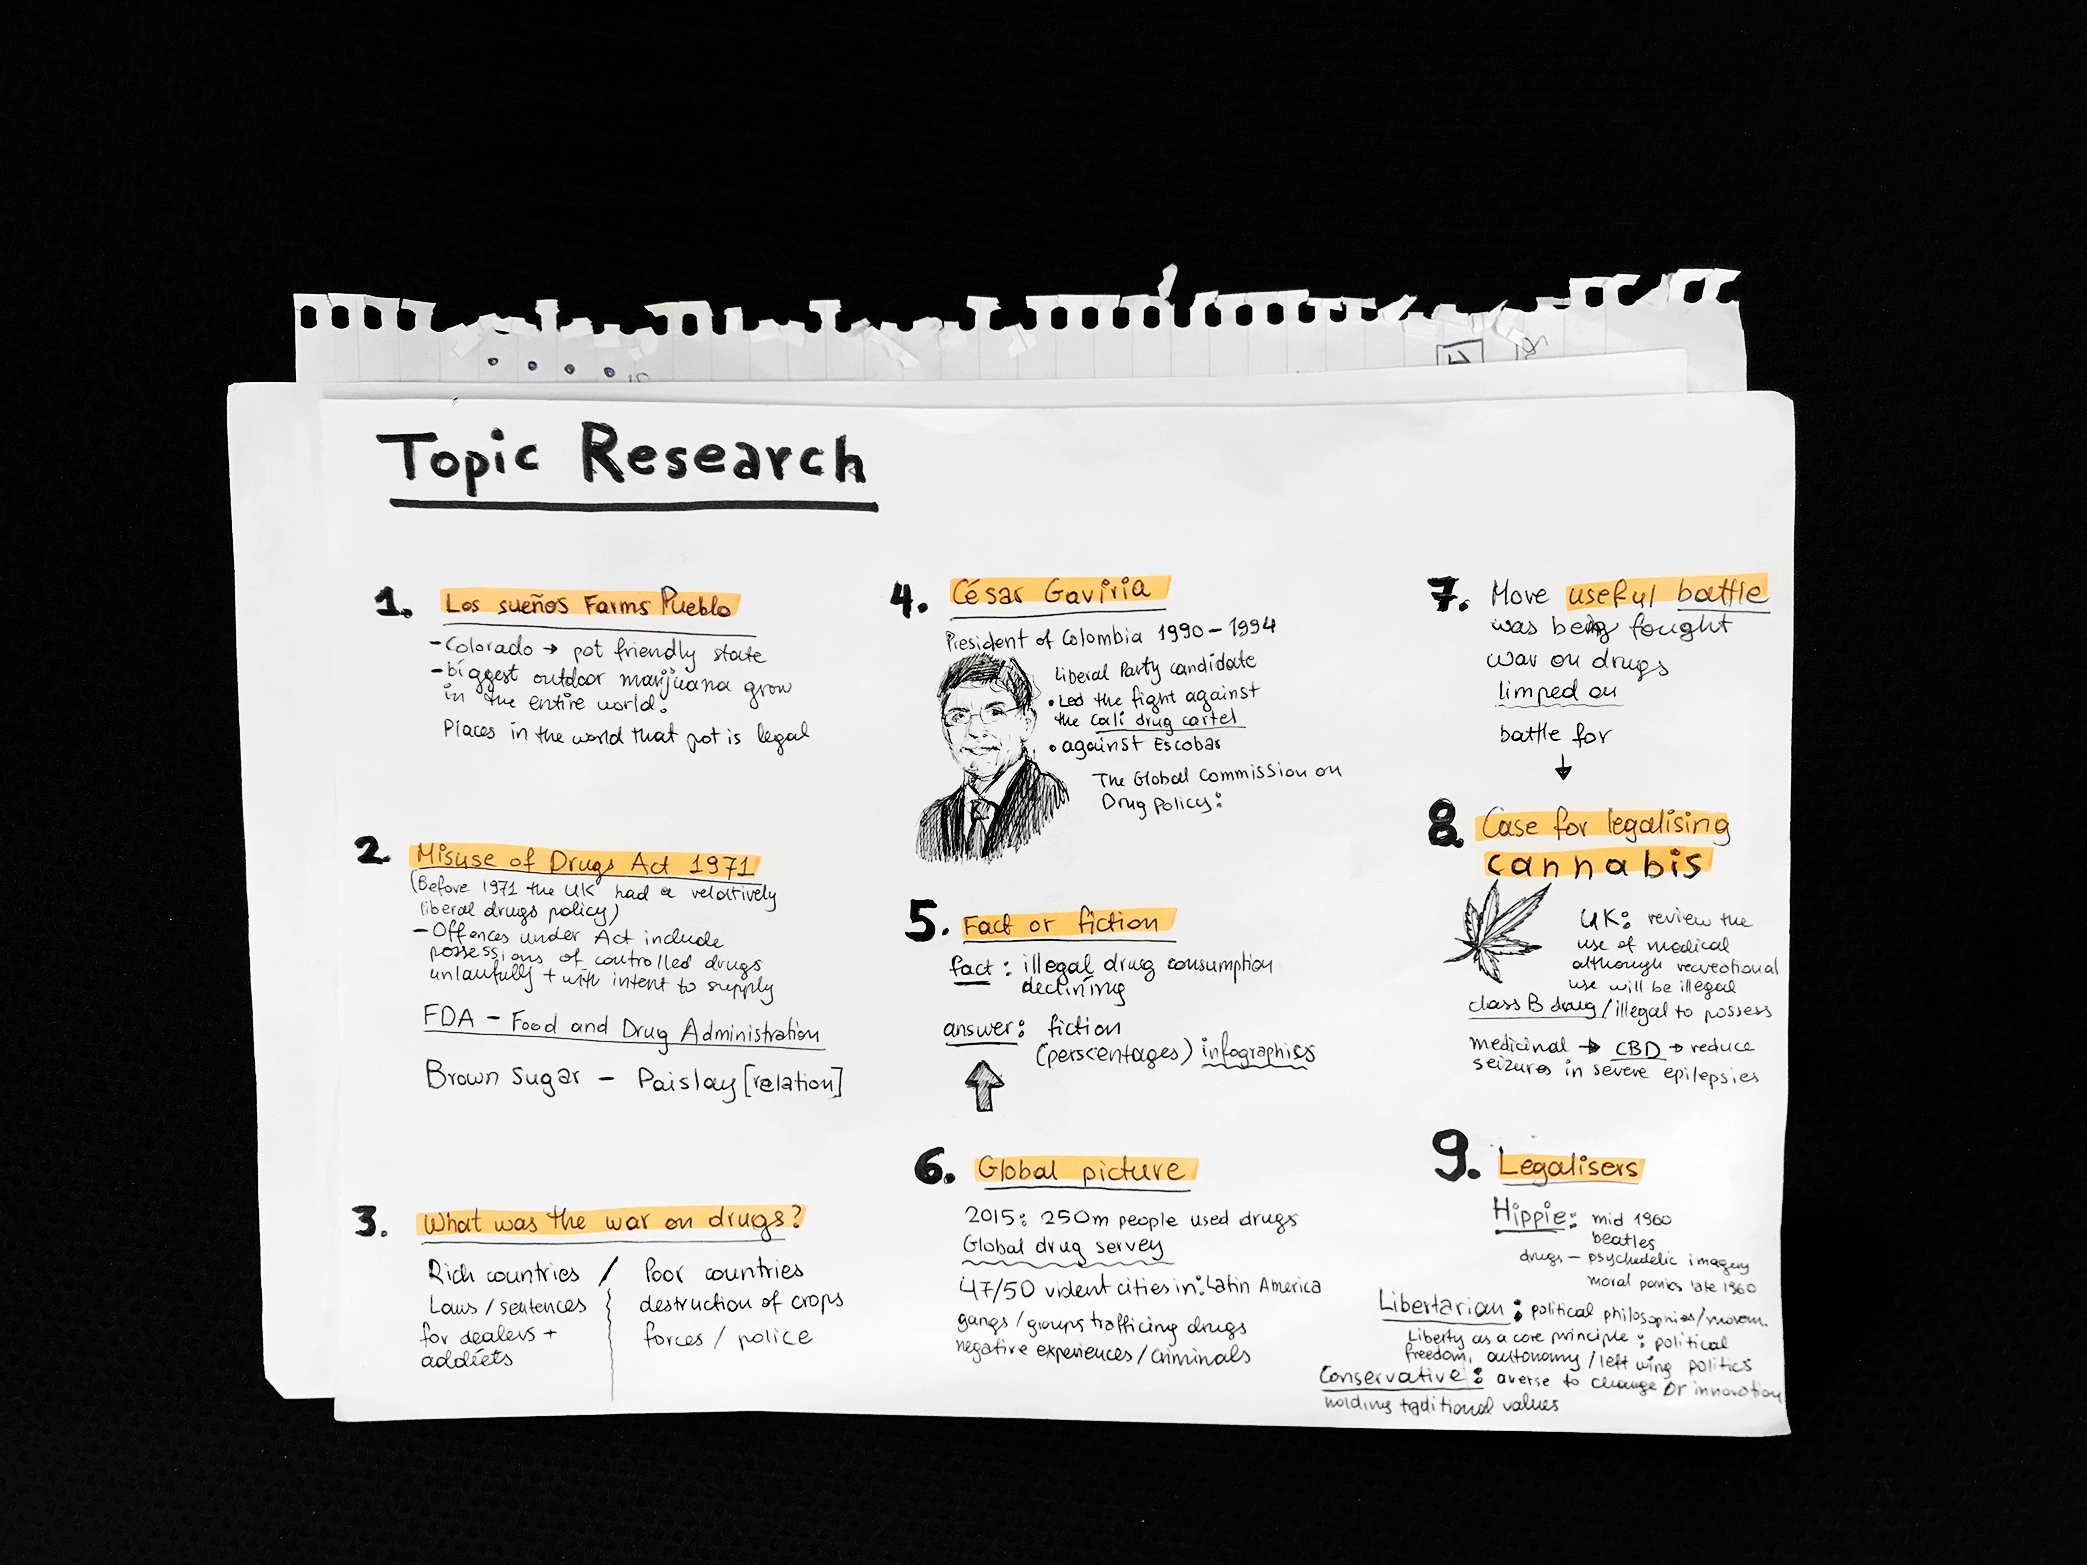 Topic Research
1. Los sueños Farms Pueblo
-Colorado → pot friendly state
-biggest outdoor marijuana grow
in the entire world.
Places in the world that pot is legal
2. Misuse of Drugs Act 1971
(Before 1971 the UK had a relatively
liberal drugs policy)
-Offences under Act include
possessions of controlled drugs
unlawfully + with intent to supply
FDA - Food and Drug Administration
Brown Sugar - Paislay [relation]
3. What was the war on drugs?
Rich countries / Poor countries
Laws / sentences destruction of crops
for dealers + forces / police
addicts
4. César Gaviria
President of Colombia 1990-1994
Liberal Party candidate
• Led the fight against
the Cali drug cartel
• against Escobar
The Global Commission on
Drug Policy:
5. Fact or fiction
fact: illegal drug consumption
declining
answer: fiction
(perscentages) infographics
6. Global picture
2015: 250m people used drugs
Global drug servey
47/50 vident cities in: Latin America
gangs / groups trafficing drugs
negative experiences / criminals
7. Move useful battle
was being fought
war on drugs
limped on
battle for
↓
8. Case for legalising
cannabis
UK: review the
use of medical
although recreotional
use will be illegal
class B drug / illegal to possess
medicinal → CBD → reduce
seizures in severe epilepsies
9. Legalisers
Hippie: mid 1960
beatles
drugs - psychedelic imagery
moral panics late 1960
Libertarian: political philosophies/movem.
Liberty as a core principle: political
freedom, autonomy / left wing politics
Conservative: averse to change or innovation
holding traditional values